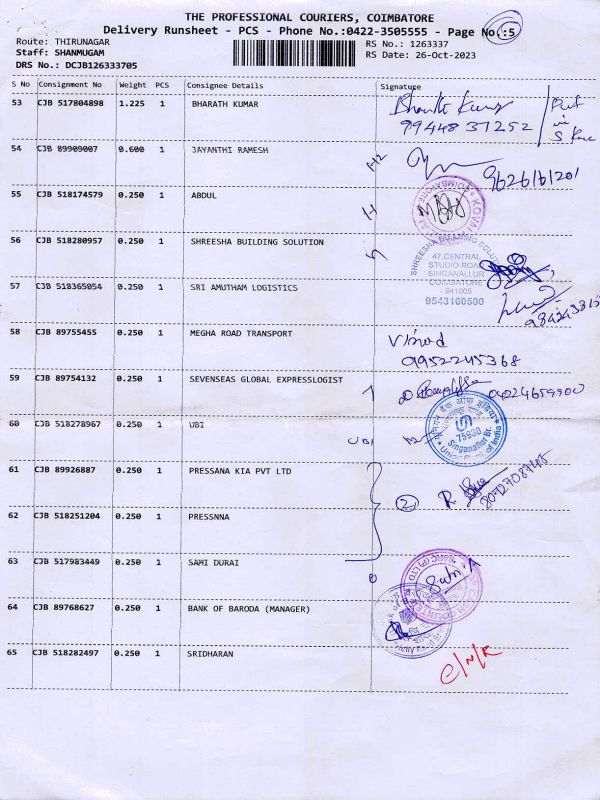 THE PROFESSIONAL COURIERS, COIMBATORE
Delivery Runsheet - PCS - Phone No.:0422-3505555 - Page No.:5
Route: THIRUNAGAR RS No.: 1263337
Staff: SHANMUGAM RS Date: 26-Oct-2023
DRS No.: DCJB126333705
S No Consignment No Weight PCS Consignee Details Signature
53 CJB 517804898 1.225 1 BHARATH KUMAR Bharath Kumar
9944837252
54 CJB 89909007 0.600 1 JAYANTHI RAMESH
55 CJB 518174579 0.250 1 ABDUL
56 CJB 518280957 0.250 1 SHREESHA BUILDING SOLUTION SHREESHA BUILDING SOLUTION
47,CENTRAL
STUDIO ROAD
SINGANALLUR
COIMBATORE
- 641005
9543160500
57 CJB 518365054 0.250 1 SRI AMUTHAM LOGISTICS
58 CJB 89755455 0.250 1 MEGHA ROAD TRANSPORT Vinod
9952245368
59 CJB 89754132 0.250 1 SEVENSEAS GLOBAL EXPRESSLOGIST 04224659900
60 CJB 518278967 0.250 1 UBI UBI
यूनियन बैंक ऑफ इंडिया
75930
Singanallur Br.
Union Bank of India
61 CJB 89926887 0.250 1 PRESSANA KIA PVT LTD
62 CJB 518251204 0.250 1 PRESSNNA 2
63 CJB 517983449 0.250 1 SAMI DURAI
64 CJB 89768627 0.250 1 BANK OF BARODA (MANAGER)
65 CJB 518282497 0.250 1 SRIDHARAN